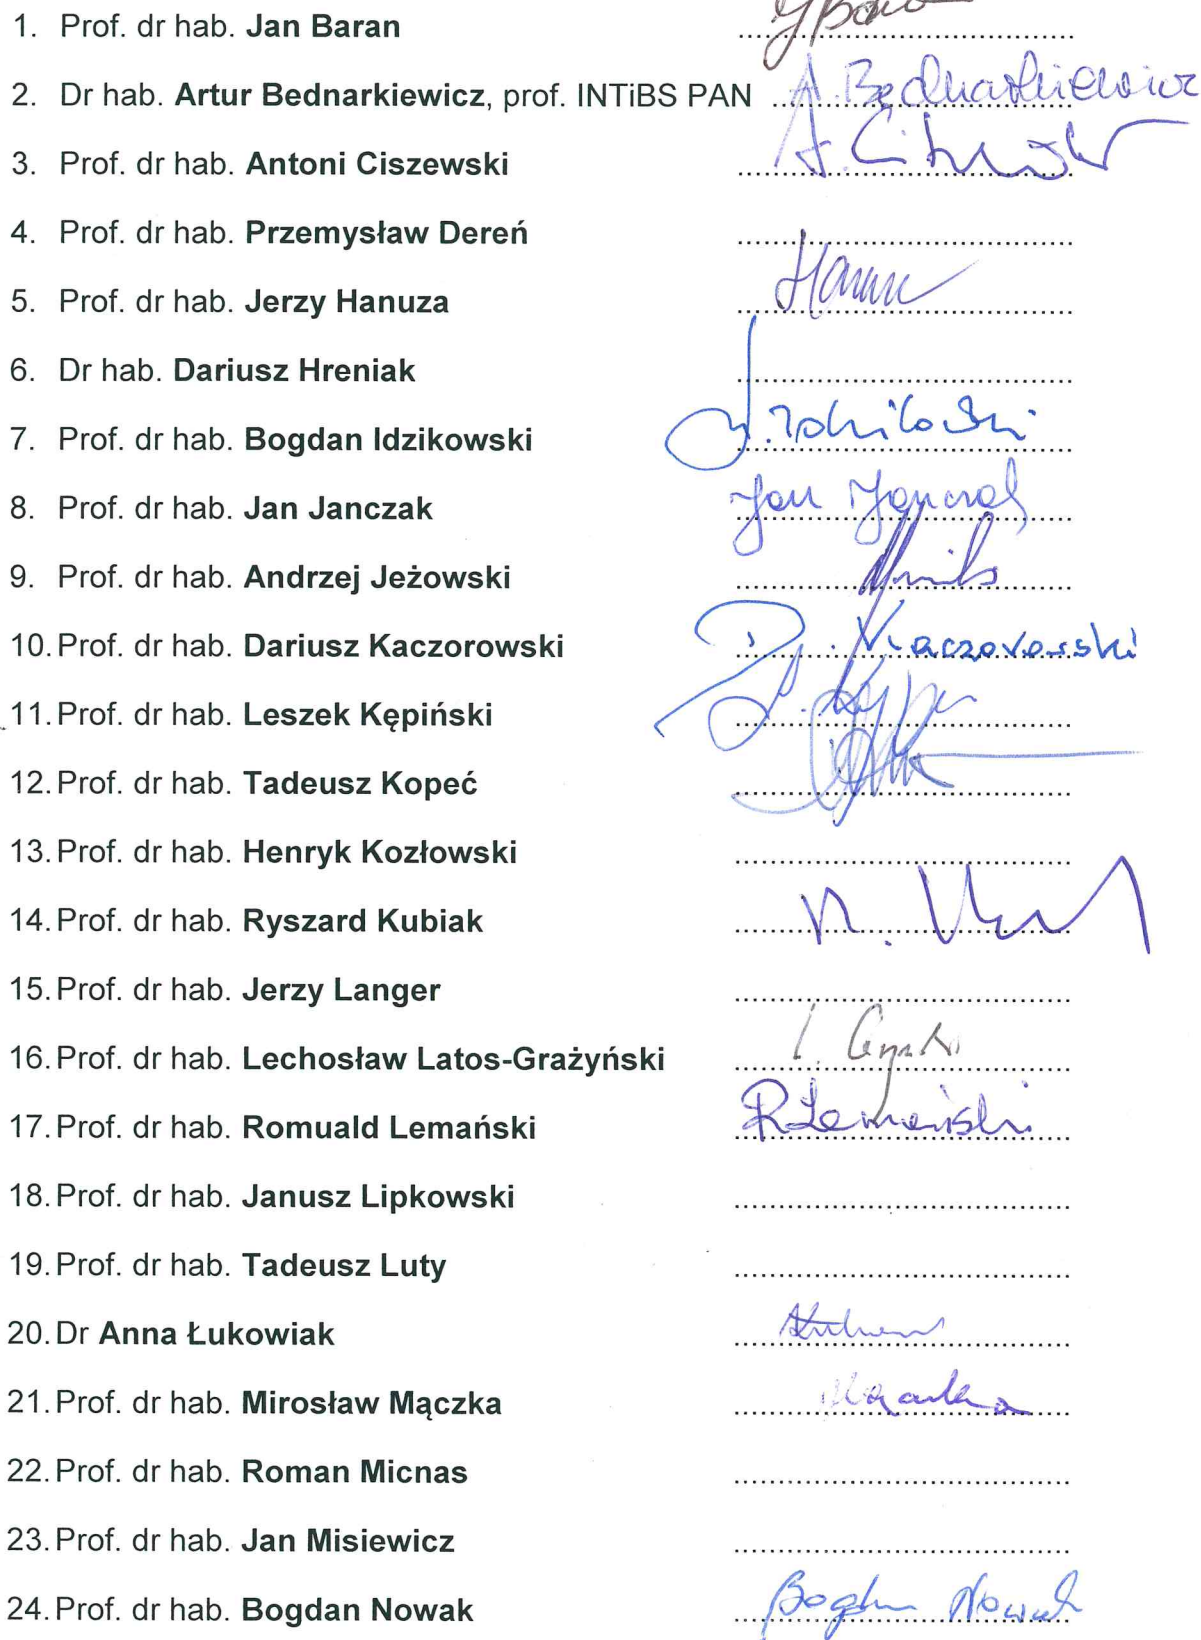 1. Prof. dr hab. Jan Baran
2. Dr hab. Artur Bednarkiewicz, prof. INTiBS PAN A. Bednarkiewicz
3. Prof. dr hab. Antoni Ciszewski
4. Prof. dr hab. Przemysław Dereń
5. Prof. dr hab. Jerzy Hanuza
6. Dr hab. Dariusz Hreniak
7. Prof. dr hab. Bogdan Idzikowski
8. Prof. dr hab. Jan Janczak Jan Janczak
9. Prof. dr hab. Andrzej Jeżowski
10. Prof. dr hab. Dariusz Kaczorowski D. Kaczorowski
11. Prof. dr hab. Leszek Kępiński
12. Prof. dr hab. Tadeusz Kopeć
13. Prof. dr hab. Henryk Kozłowski
14. Prof. dr hab. Ryszard Kubiak
15. Prof. dr hab. Jerzy Langer
16. Prof. dr hab. Lechosław Latos-Grażyński
17. Prof. dr hab. Romuald Lemański RLemański
18. Prof. dr hab. Janusz Lipkowski
19. Prof. dr hab. Tadeusz Luty
20. Dr Anna Łukowiak
21. Prof. dr hab. Mirosław Mączka
22. Prof. dr hab. Roman Micnas
23. Prof. dr hab. Jan Misiewicz
24. Prof. dr hab. Bogdan Nowak Bogdan Nowak